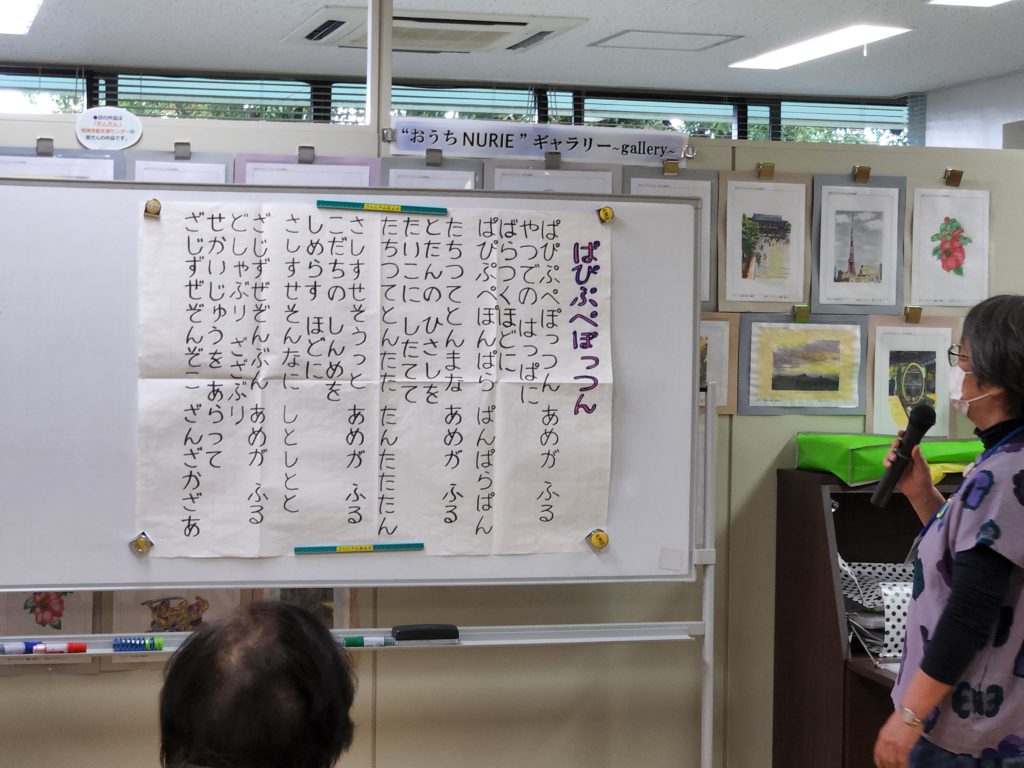 "おうちNURIE"ギャラリー~gallery~
ぱぴぷぺぽっつん
ぱぴぷぺぽっつん あめが ふる
やつでの はっぱに
ばらつくほどに
ぱぴぷぺぽんぱら ぱんぱらぱん
たちつてとんまな あめが ふる
とたんの ひさしを
たいこに したてて
たちつてとんたた たんたたたん
さしすせそうっと あめが ふる
こだちの しんめを
しめらす ほどに
さしすせそんなに しとしとと
ざじずぜぞんぶん あめが ふる
どしゃぶり ざざぶり
せかいじゅうを あらって
ざじずぜぞんぞこ ざんざかざあ